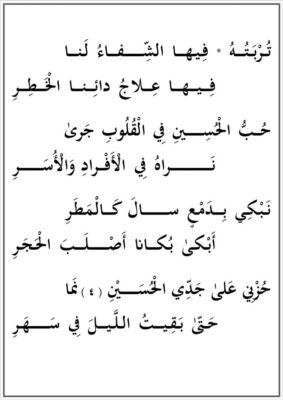 تُرْبَتُهُ * فِيهَا الشِّفَاءُ لَنَا
فِيهَا عِلَاجُ دَائِنَا الْخَطِرِ
حُبُّ الْحُسِينِ فِي الْقُلُوبِ جَرىٰ
نَرَاهُ فِي الْأَفْرادِ وَالْأُسَرِ
نَبْكِي بِدَمْعٍ سالَ كَالْمَطَرِ
أَبْكىٰ بُكَانا أَصْلَبَ الْحَجَرِ
حُزْنِي عَلىٰ جَدِّي الْحُسَيْنِ (٤) نَمَا
حَتّىٰ بَقِيتُ اللَّيلَ فِي سَهَرِ